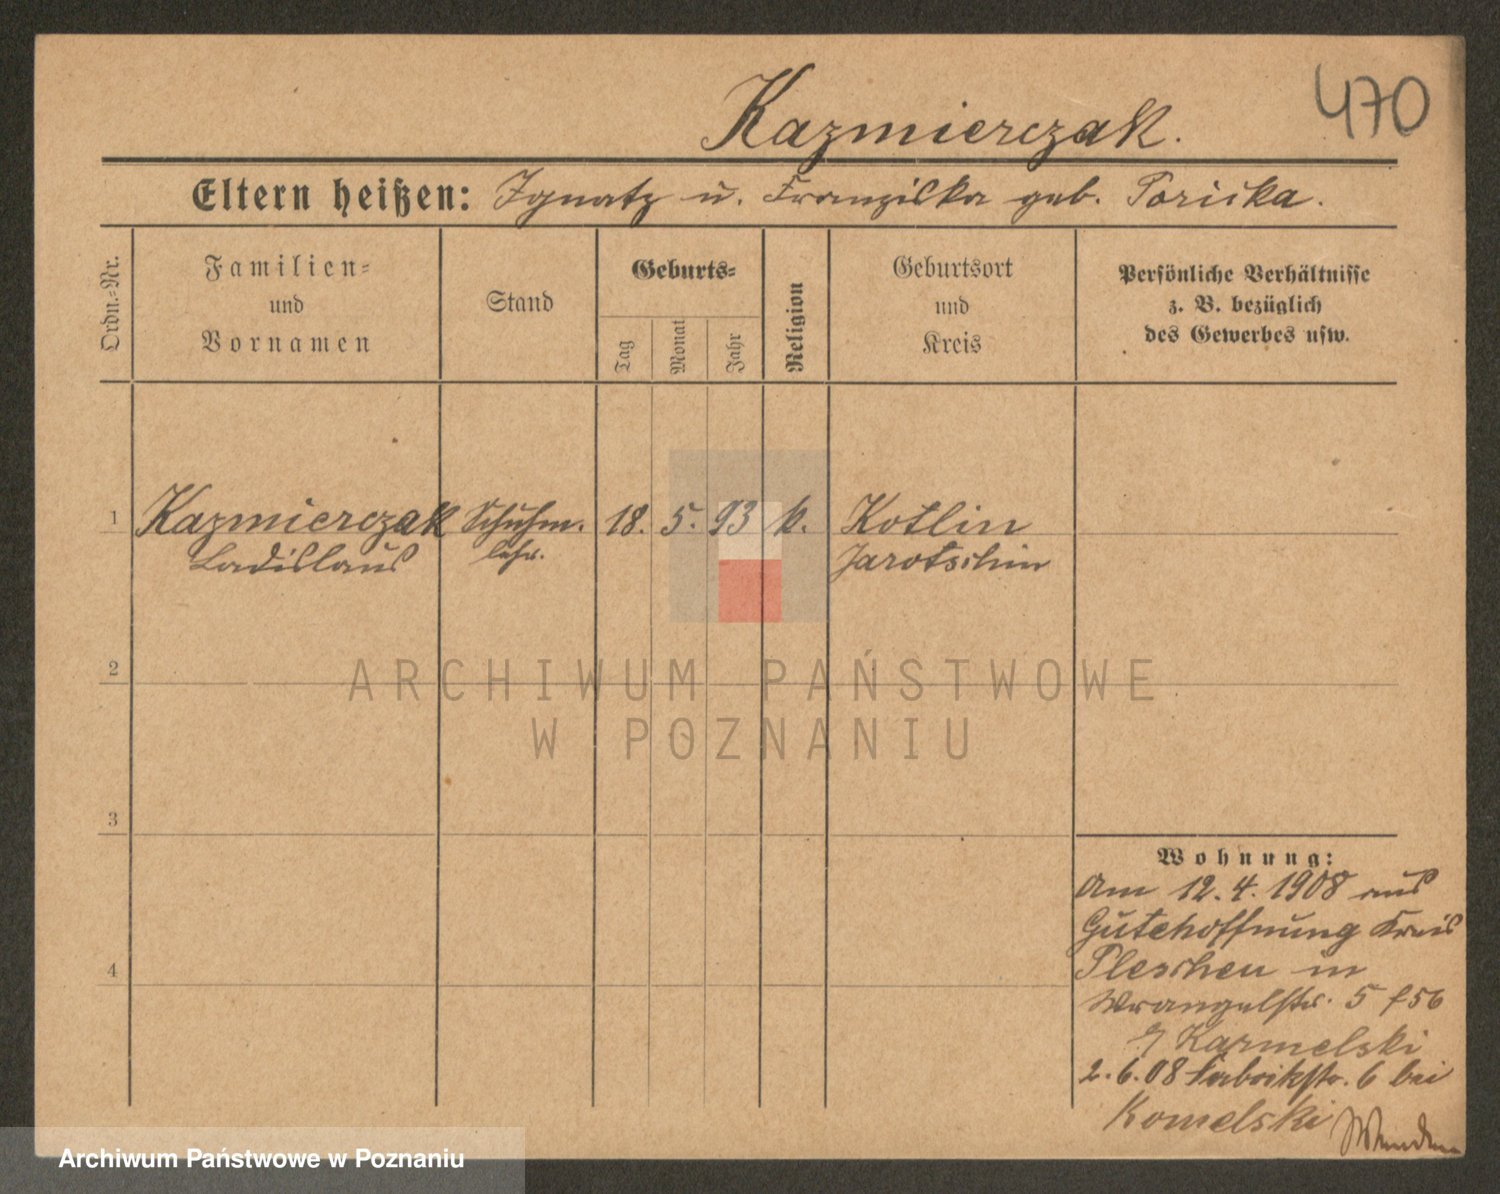 470
Kazmierczak.
Eltern heißen: Ignatz u. Franziska geb.
Ordn.-Nr.
Familien-
und
Vornamen
Stand
Geburts-
Tag
Monat
Jahr
Religion
Geburtsort
und
Kreis
Persönliche Verhältnisse
z. B. bezüglich
des Gewerbes usw.
1 Kazmierczak Schuhm. 18. 5. 93 k. Kotlin
Ladislaus lehr. Jarotschin
2
ARCHIWUM PAŃSTWOWE
W POZNANIU
3
Wohnung:
Am 12.4.1908 aus
Gutehoffnung Kreis
4
Pleschen in
Wrangelstr. 5
Kazmelski
2.6.08 Fabrikstr. 6 bei
Komelski
Archiwum Państwowe w Poznaniu